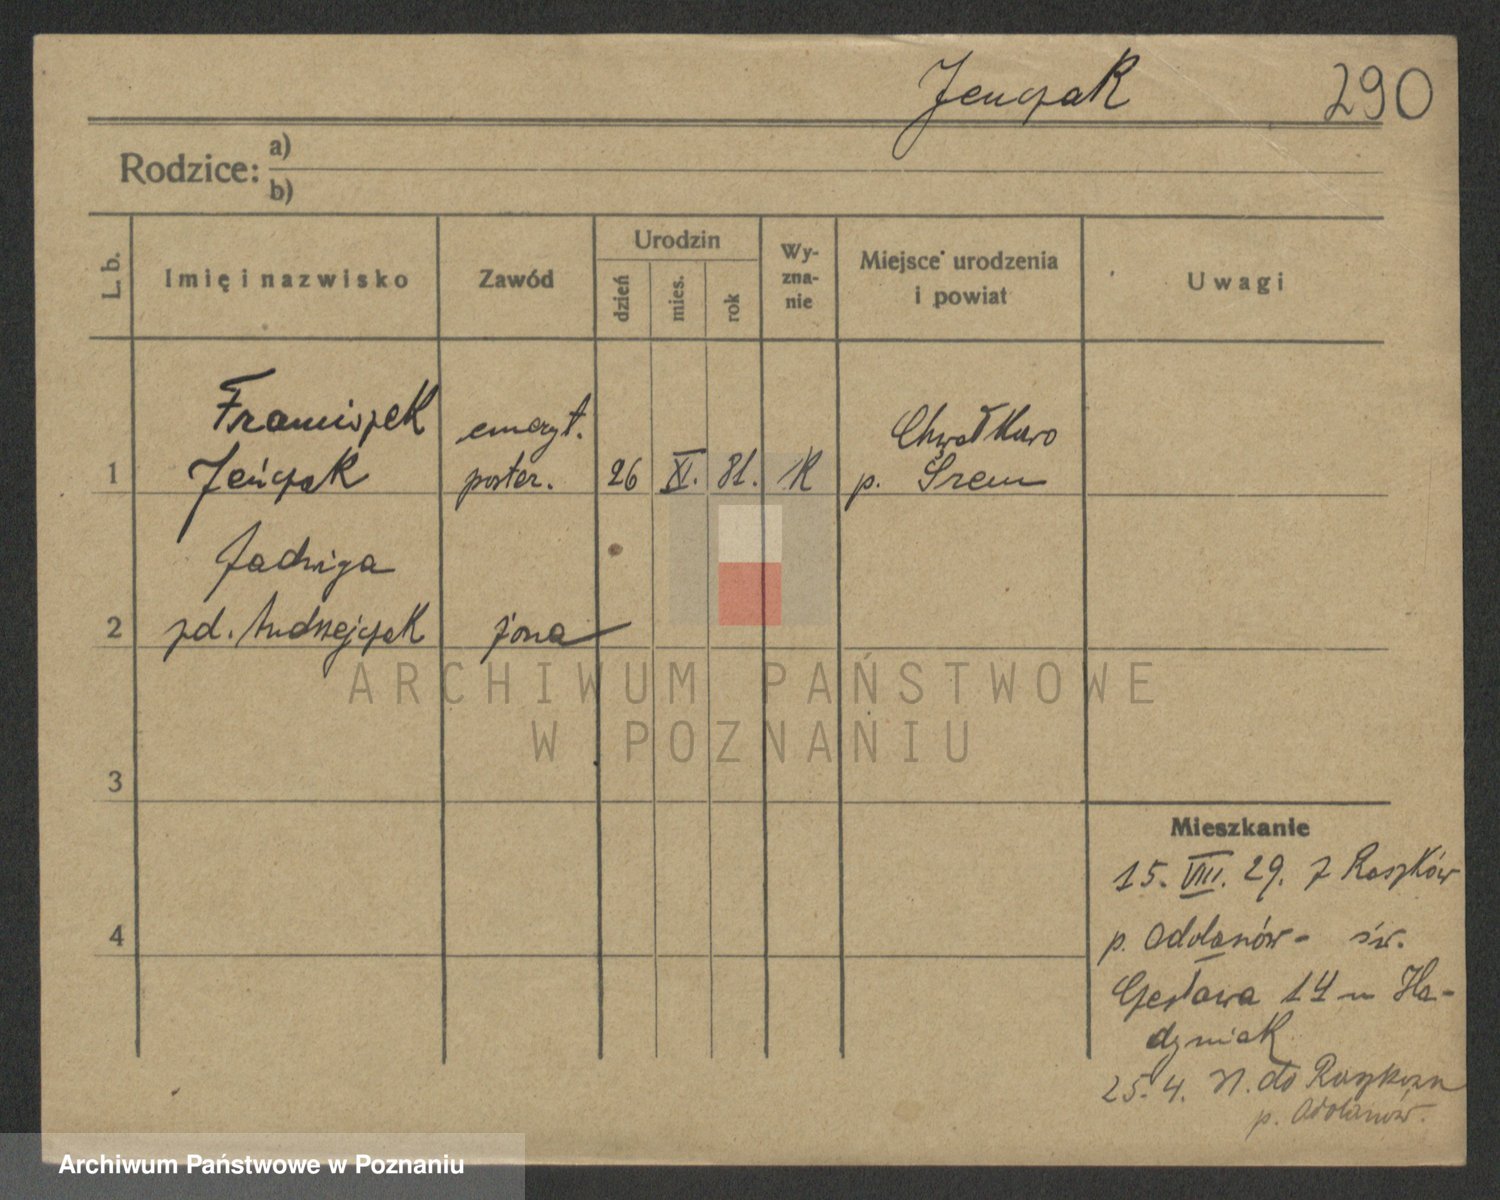 Jenczak 290
Rodzice: a)
b)
L. b. Imię i nazwisko Zawód Urodzin dzień mies. rok Wy-zna-nie Miejsce urodzenia i powiat Uwagi
Franciszek emeryt. Chwałkowo
1 Jeńczak poster. 26 XI. 81. K p. Śrem
Jadwiga
2 zd. Andrzejczak żona
3
4
Mieszkanie
15. VIII. 29. z Raszków
p. Odolanów - św.
Czesława 14 u Ha-
dyniak
25. 4. do Raszkowa
p. Odolanów.
ARCHIWUM PAŃSTWOWE
W POZNANIU
Archiwum Państwowe w Poznaniu